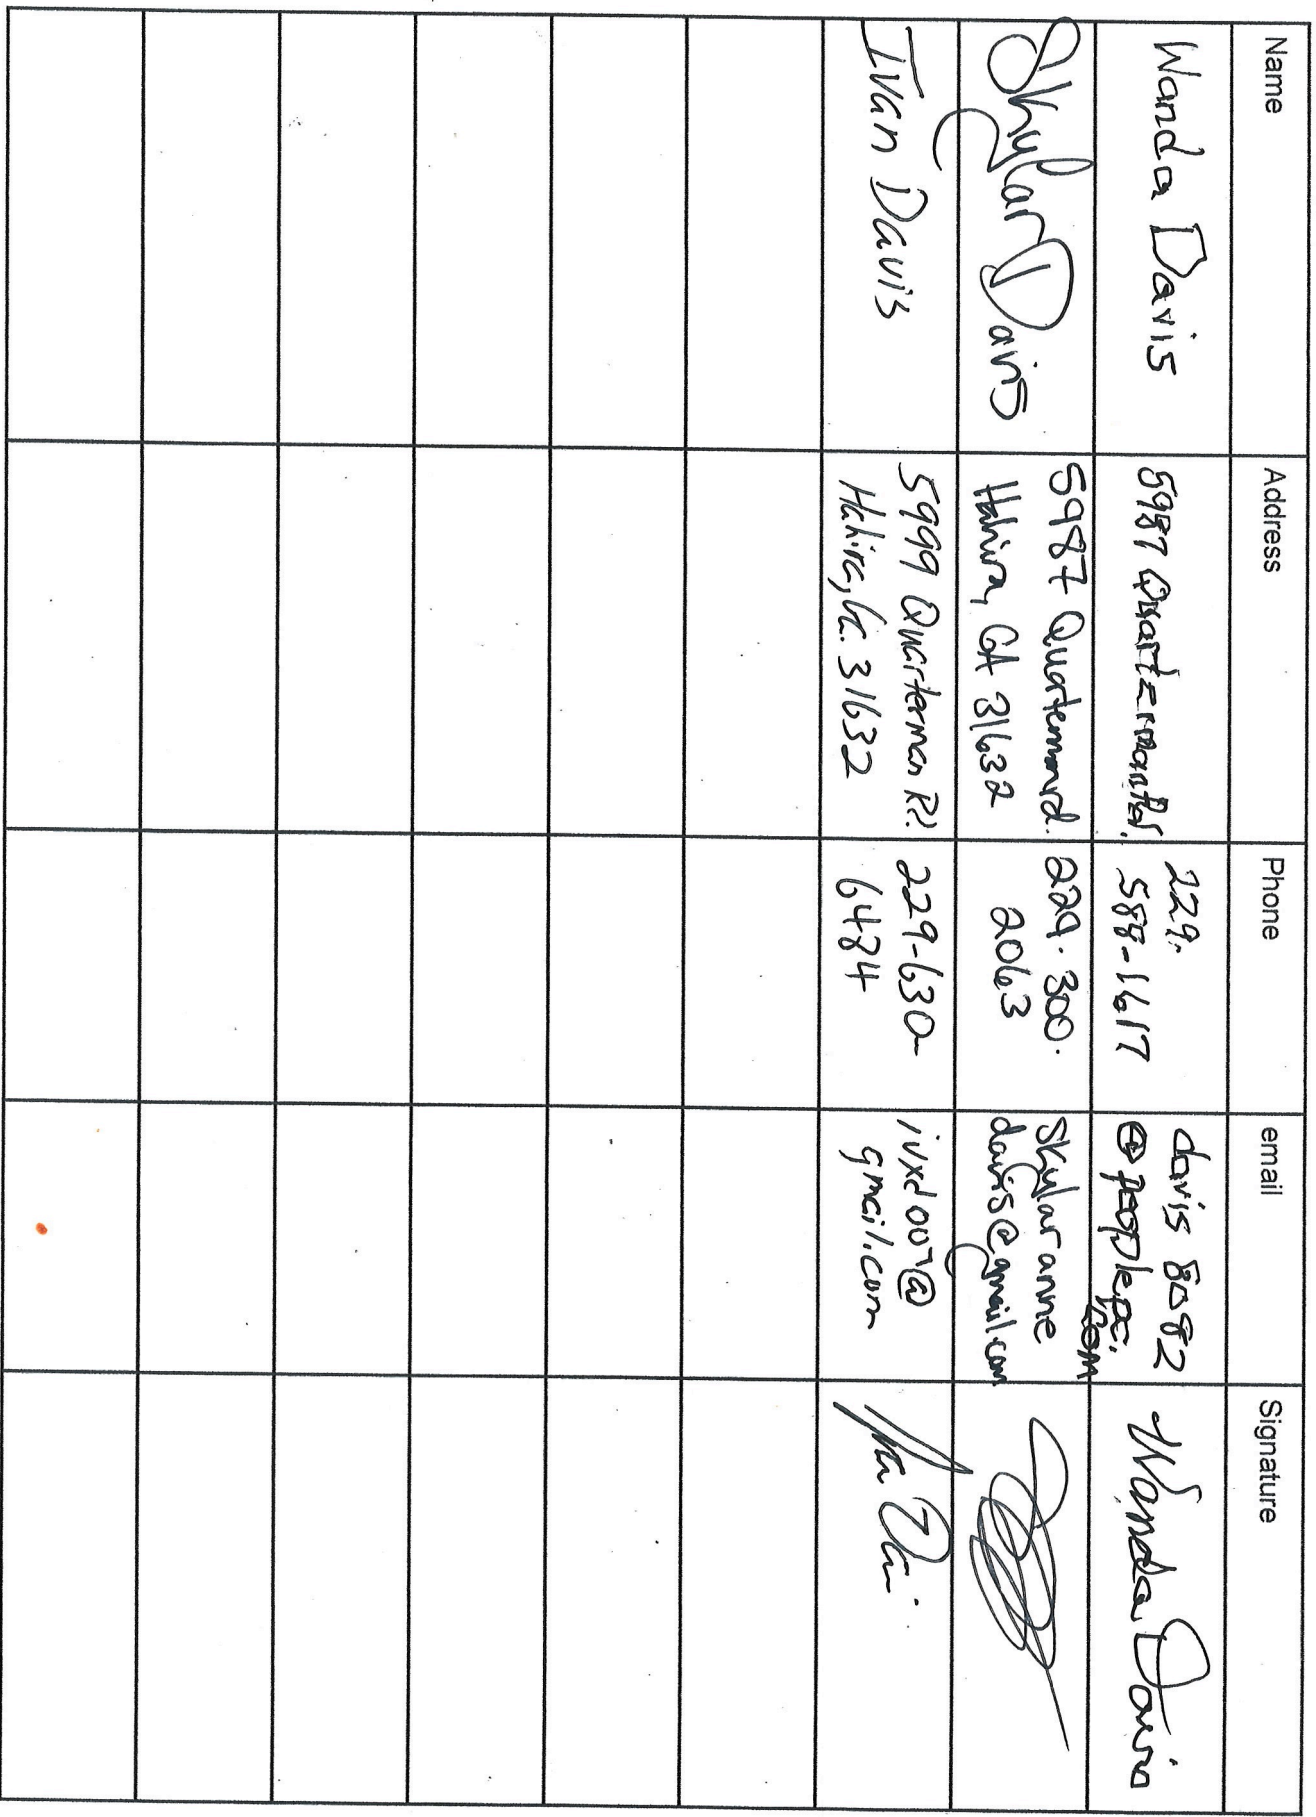 Name Address Phone email Signature
Wanda Davis
229.
588-1617
davis 8082
@peoplepc.
com
Wanda Davis
Skylar Davis
5987 Quarterman rd.
Hahira, GA 31632
229.300.
2063
Skylaranne
davis@gmail.com
Ivan Davis
5999 Quarterman Rd.
Hahira, Ga. 31632
229-630-
6484
ivxd007@
gmail.com